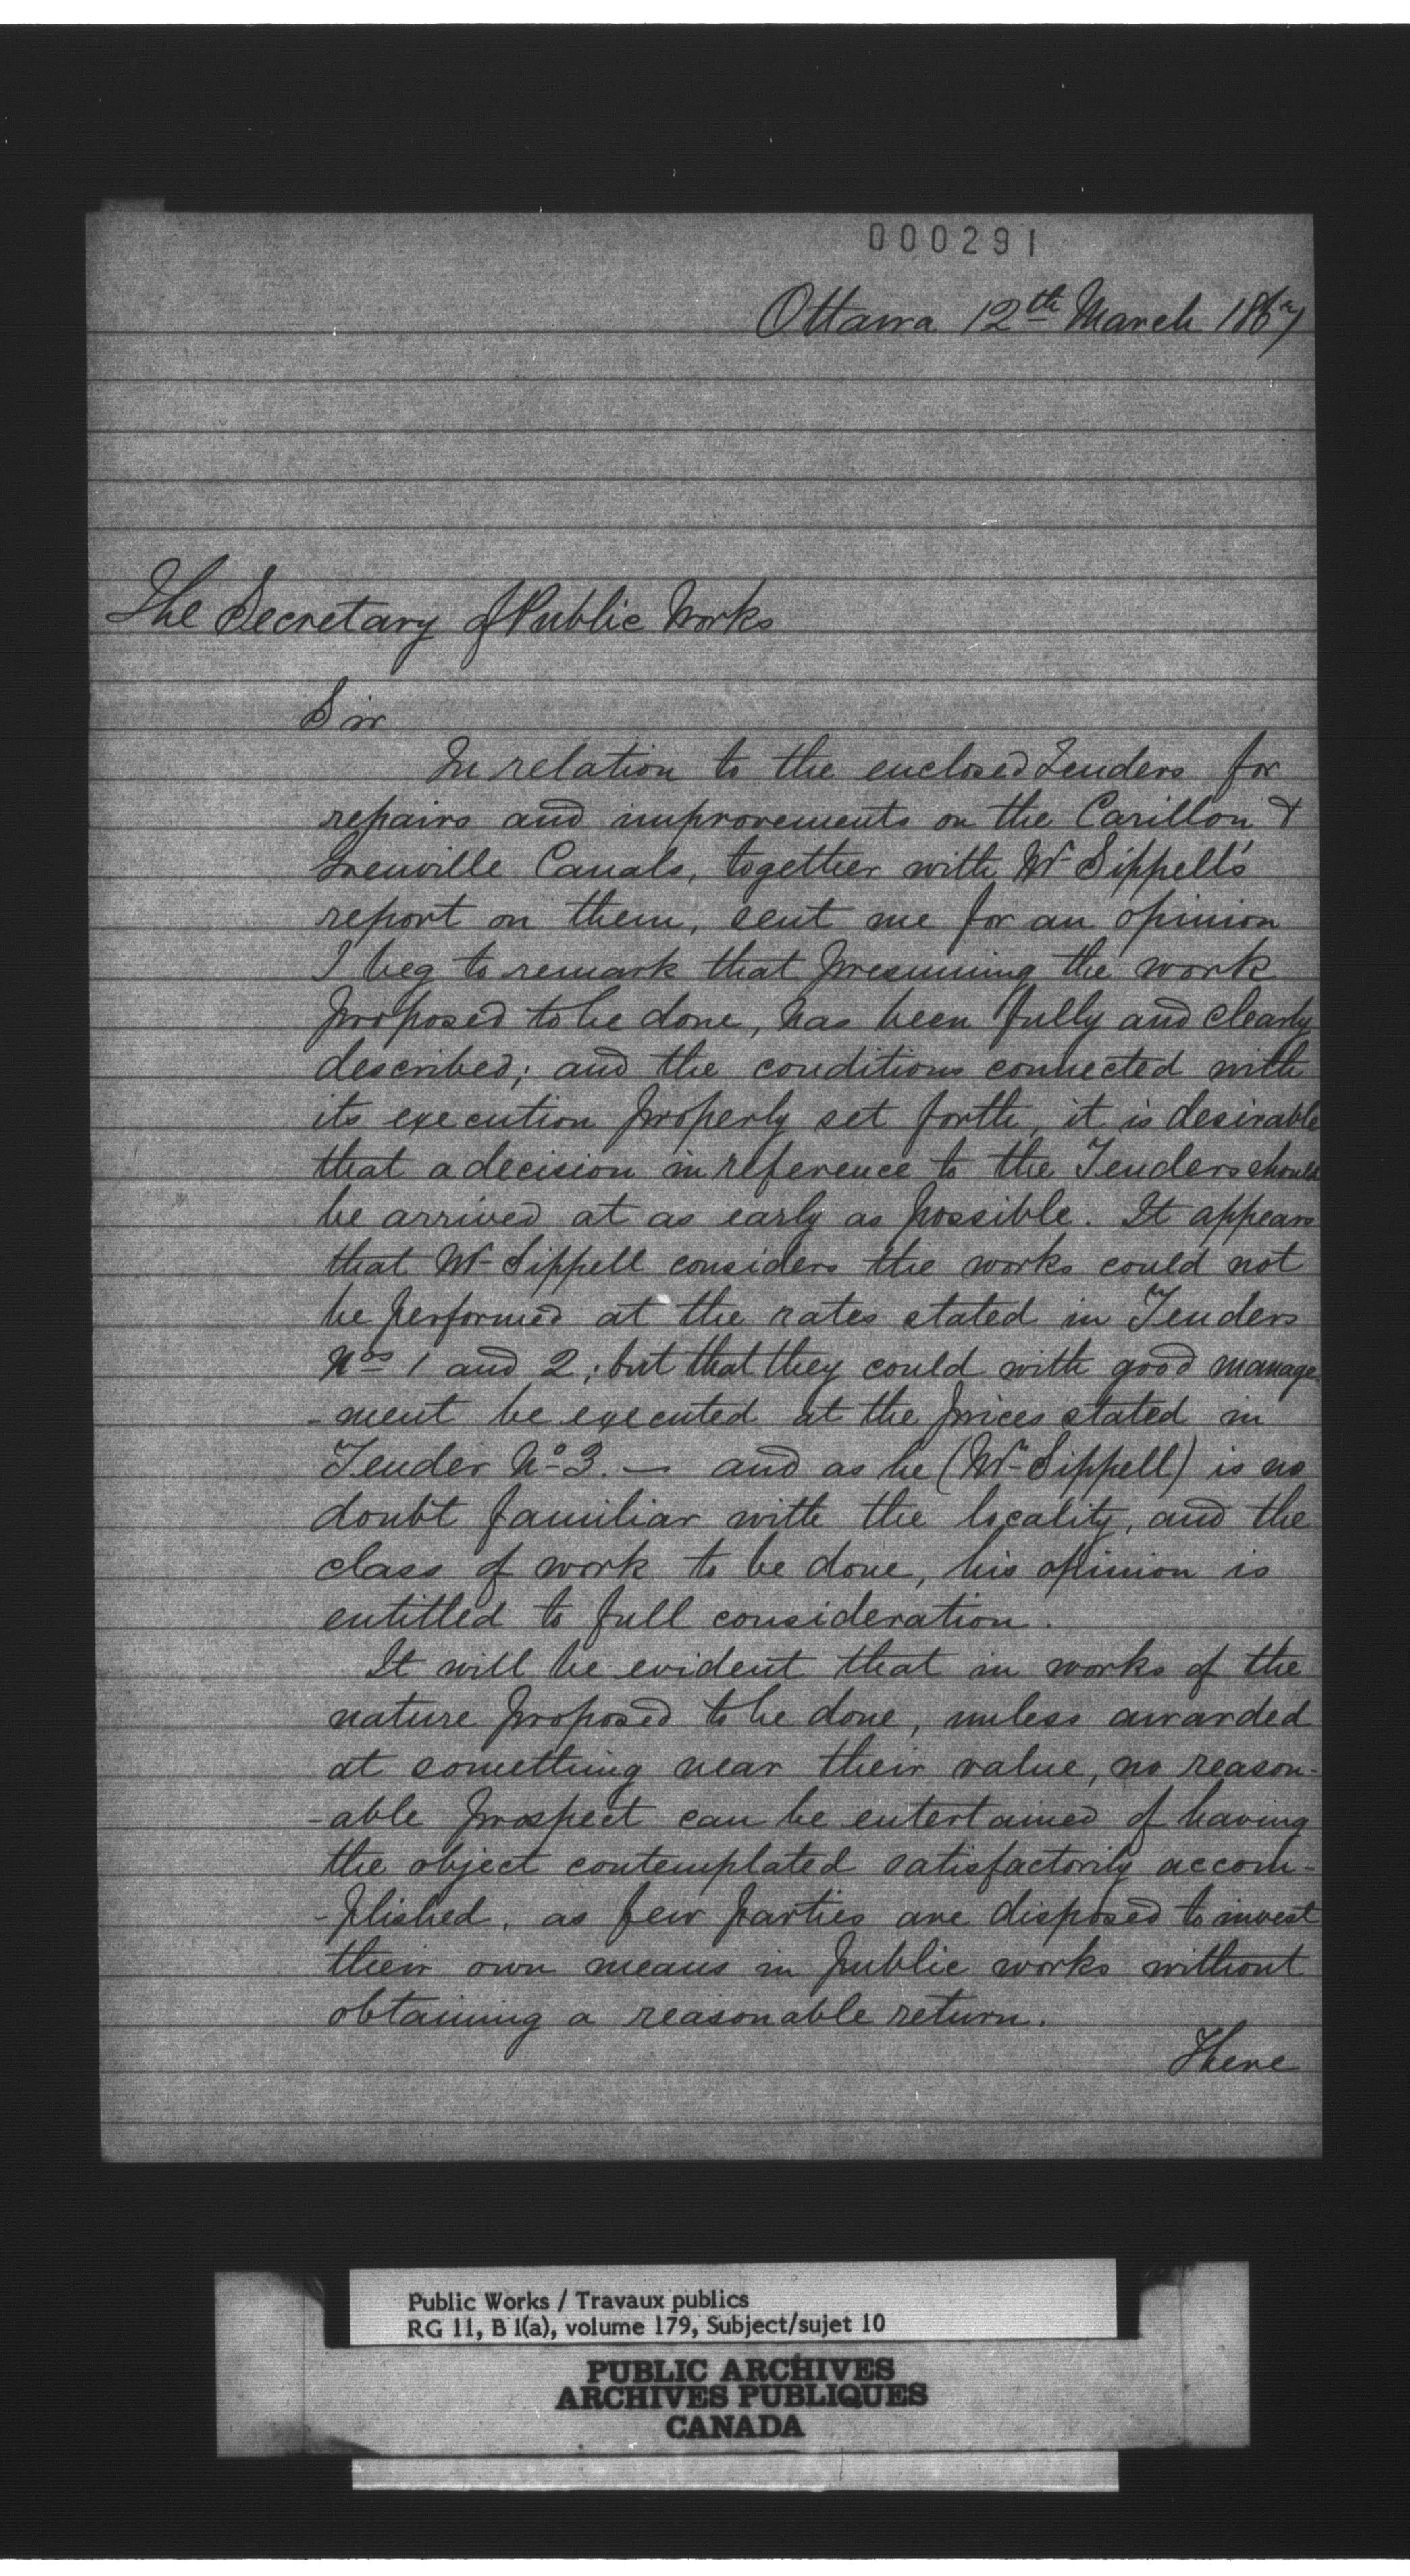 000291
Ottawa 12th March 1867
The Secretary of Public Works
Sir
In relation to the enclosed Tenders for
repairs and improvements on the Carillon &
Grenville Canals, together with Mr Sippell's
report on them, sent me for an opinion
I beg to remark that presuming the work
proposed to be done, has been fully and clearly
described; and the conditions connected with
its execution properly set forth, it is desirable
that a decision in reference to the Tenders should
be arrived at as early as possible. It appears
that Mr Sippell considers the works could not
be performed at the rates stated in Tenders
Nos 1 and 2; but that they could with good manage-
-ment be executed at the prices stated in
Tender No 3. — and as he (Mr Sippell) is no
doubt familiar with the locality, and the
class of work to be done, his opinion is
entitled to full consideration.
It will be evident that in works of the
nature proposed to be done, unless awarded
at something near their value, no reason-
-able prospect can be entertained of having
the object contemplated satisfactorily accom-
-plished, as few parties are disposed to invest
their own means in public works without
obtaining a reasonable return.
There
Public Works / Travaux publics
RG 11, B 1(a), volume 179, Subject/sujet 10
PUBLIC ARCHIVES
ARCHIVES PUBLIQUES
CANADA